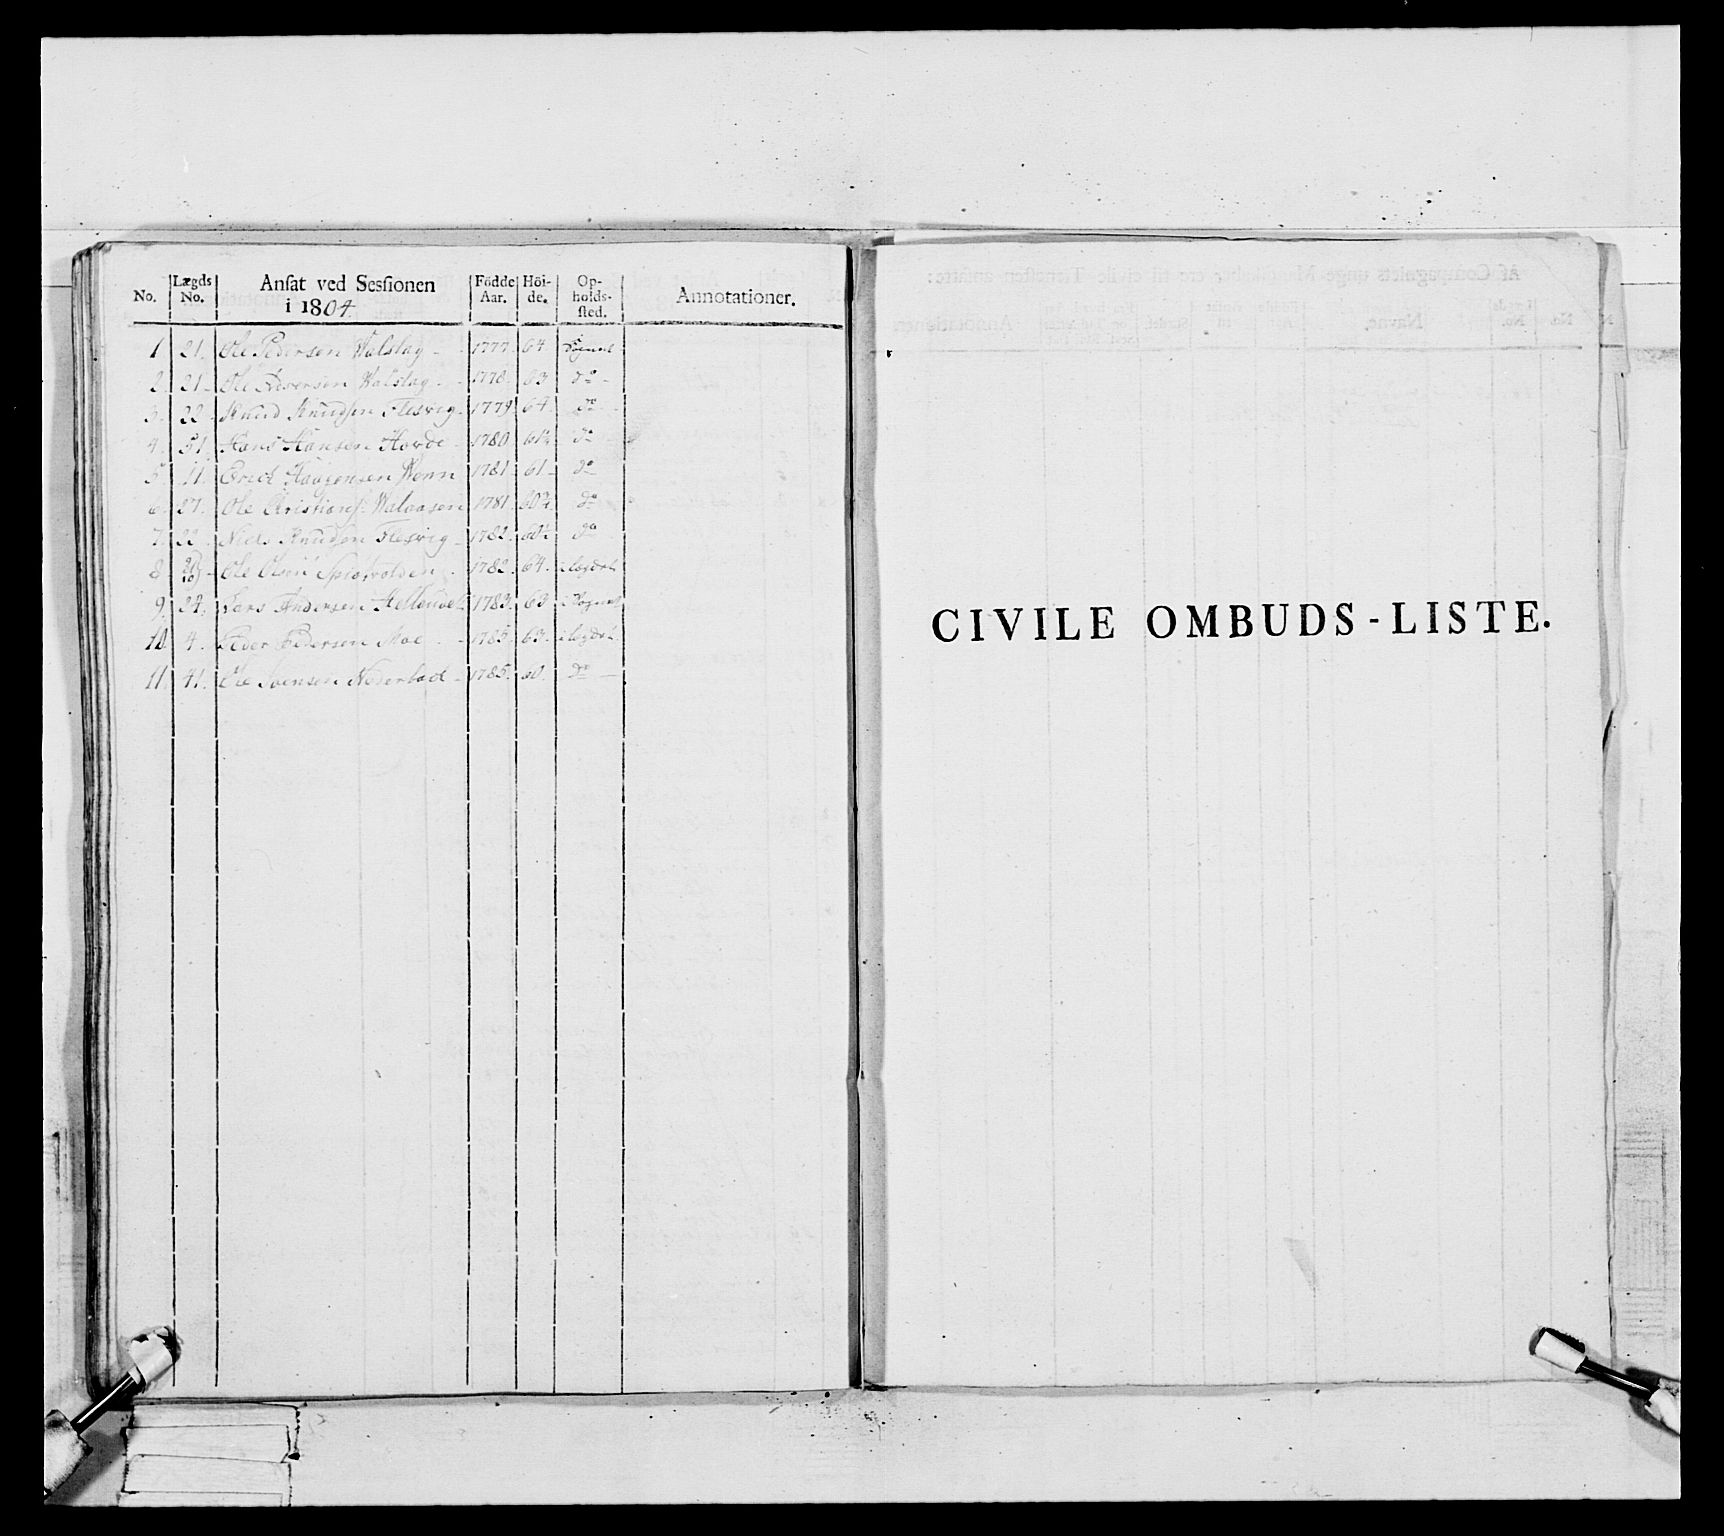 No. Lægds No. Ansat ved Sessionen i 1804. Födde Aar. Höi- de. Op- holds- sted. Annotationer.
1 21. Ole Pedersen Walslag - 1777. 64 Sognet
2. 21. Ole Iversen Walslag - 1778. 63 do -
3. 22 Knud Knudsen Flesvig. 1779. 64. do
4. 51. Hans Hansen Hovde - 1780 do
5 11. Haagensen 1781 61 - do
6. 27. Ole Christians: Walaasen 1781. 60 3/4 do
7. 22. Niels Knudsen Flesvig - 1782. 60 1/2 do
8 Ole Olsen 1782. 64. i lægdet
9. 24. Lars Andersen 1783. 63 i Sognet
10 4. Peder Pedersen Moe - 1785. 63. i lægdet
11. 41. Ole 1785. 60. do -
CIVILE OMBUDS-LISTE.